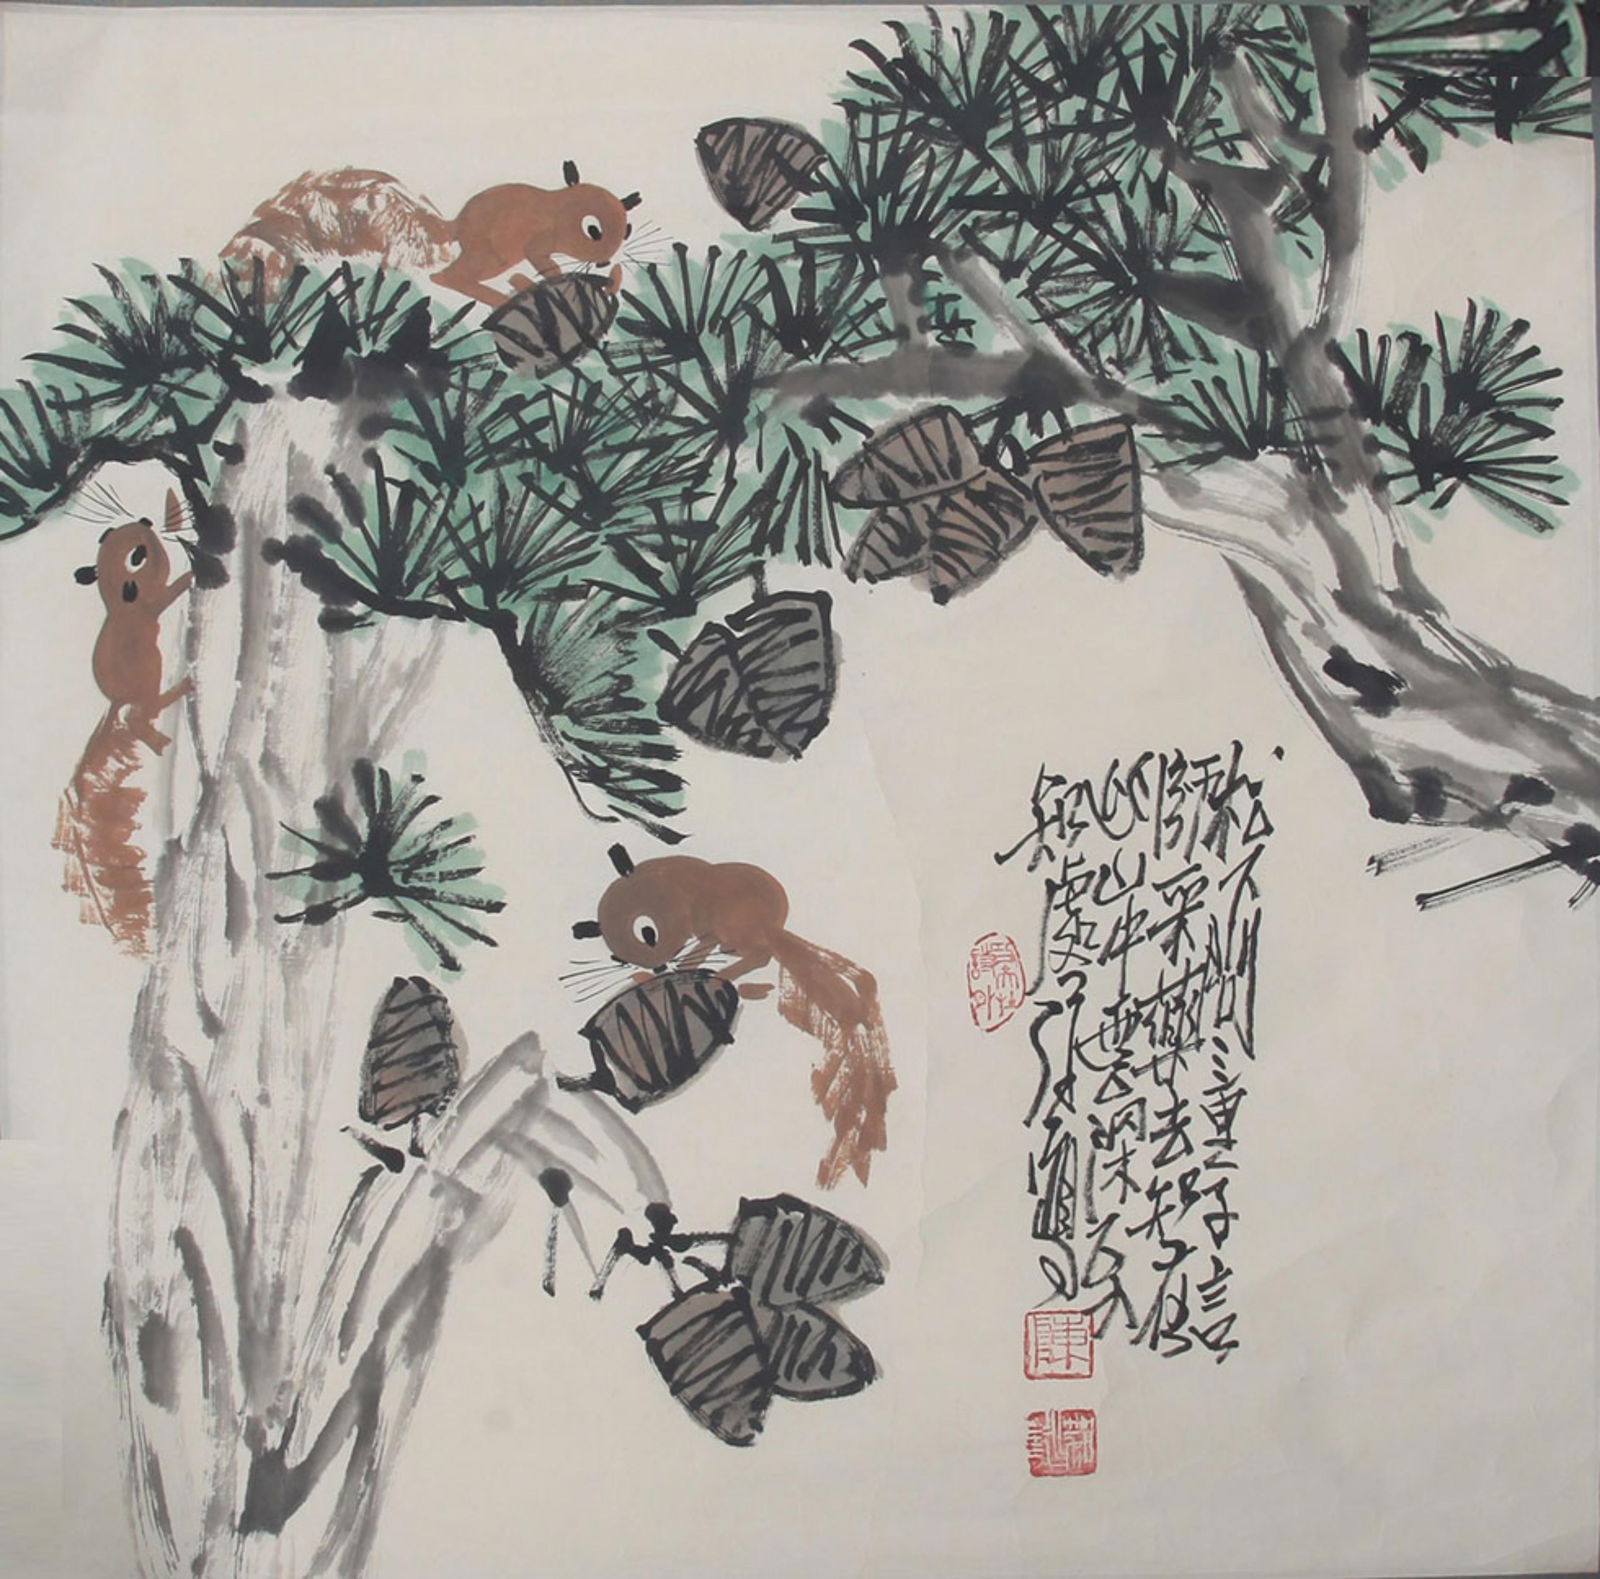 松下問童子言
師采藥去只在
此山中雲深不
知處
陳